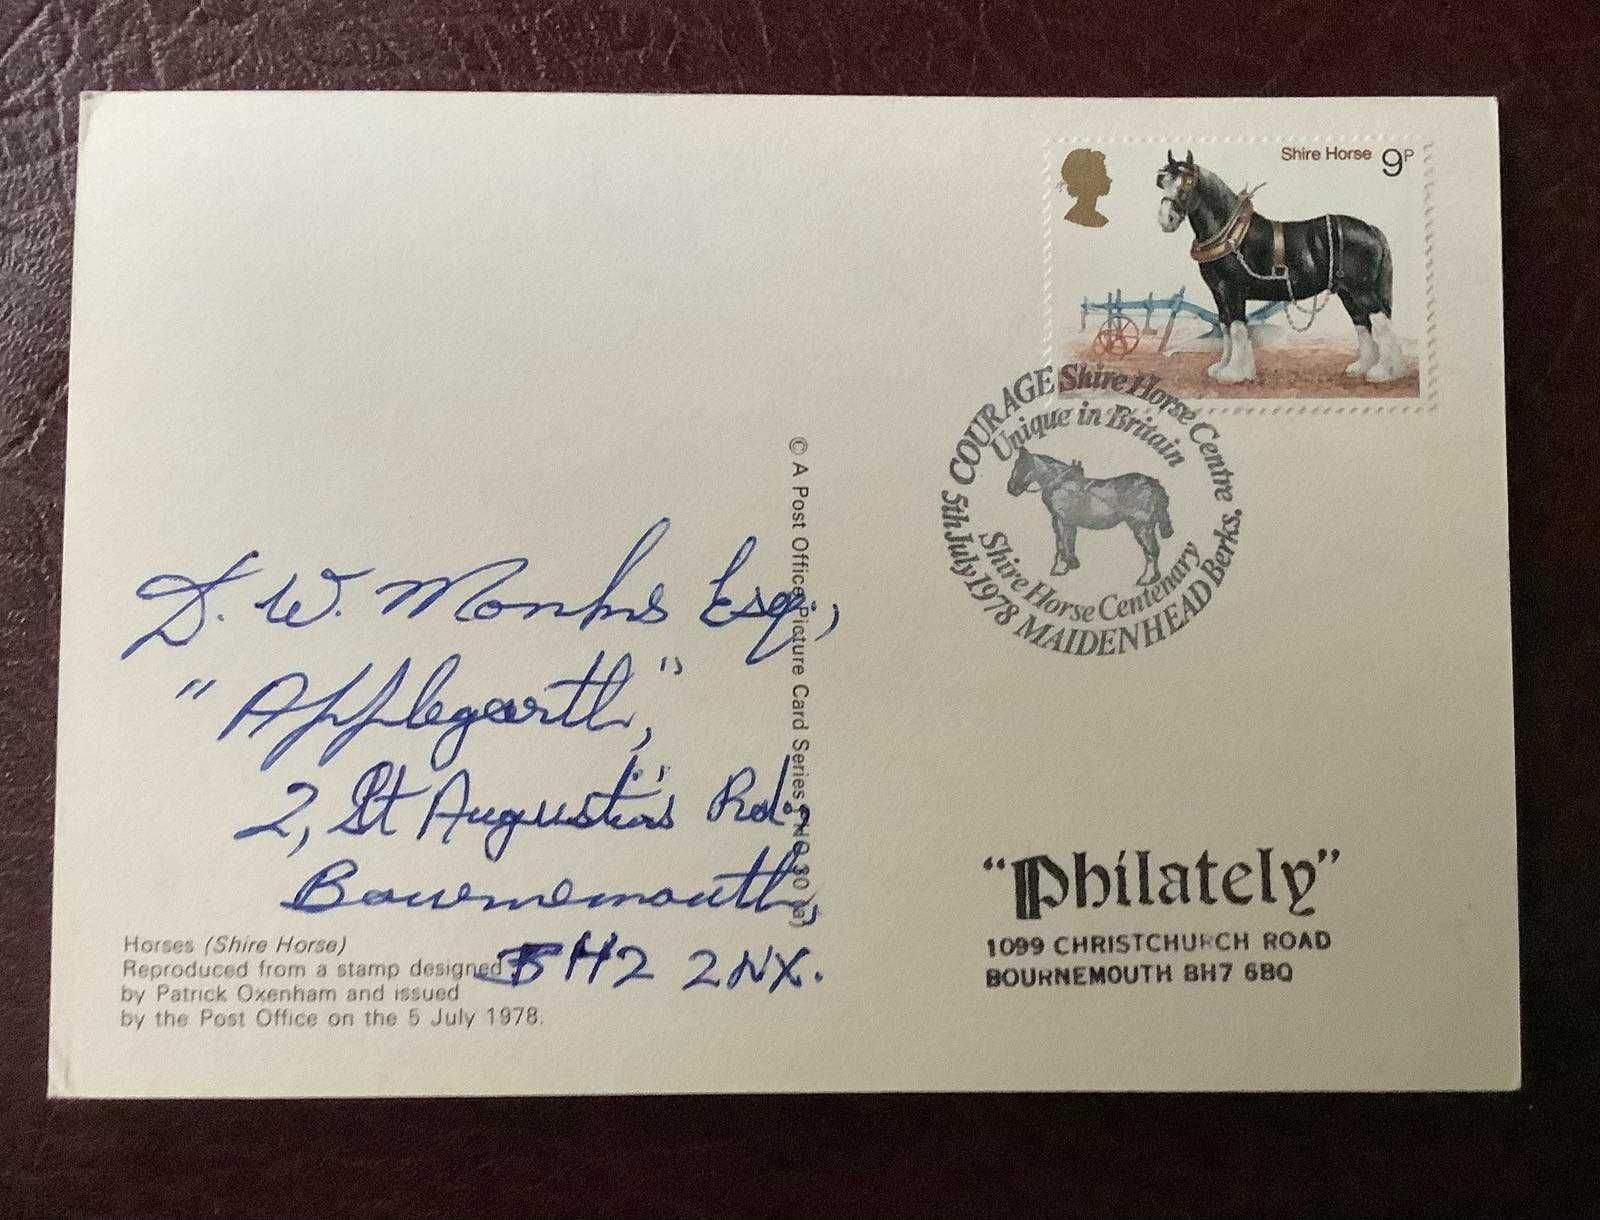 Shire Horse 9P
COURAGE Shire Horse Centre
Unique in Britain
Shire Horse Centenary
5th July 1978 MAIDENHEAD Berks.
© A Post Office Picture Card Series
D. W. Monks Esq.,
"Applegarth,"
2, St Augustin's Rd.,
Bournemouth,
BH2 2NX.
Horses (Shire Horse)
Reproduced from a stamp designed
by Patrick Oxenham and issued
by the Post Office on the 5 July 1978.
"Philately"
1099 CHRISTCHURCH ROAD
BOURNEMOUTH BH7 6BQ